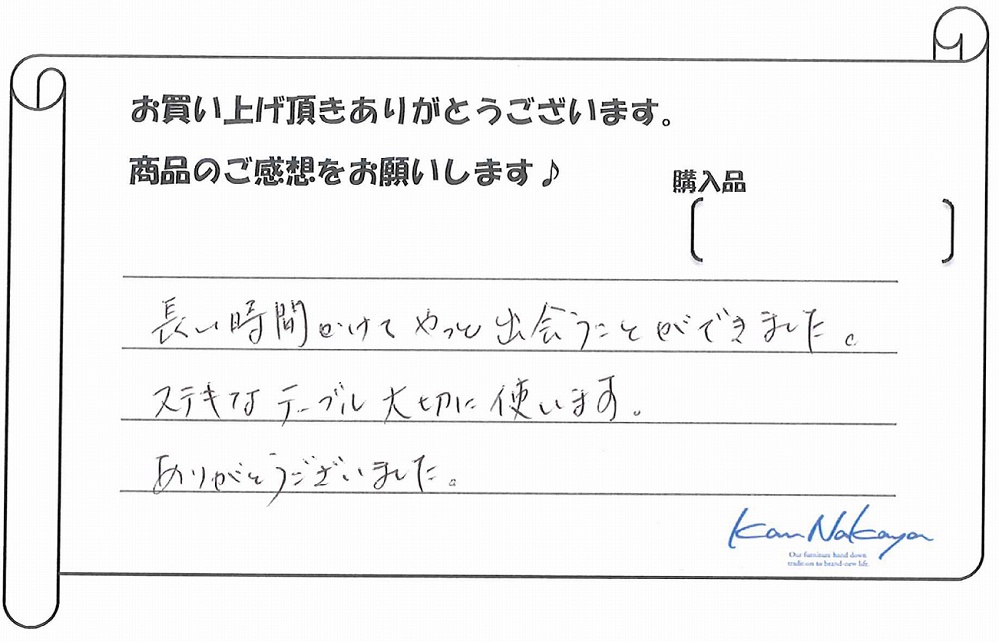 お買い上げ頂きありがとうございます。
商品のご感想をお願いします♪
購入品
長い時間かけてやっと出会うことができました。
ステキなテーブル大切に使います。
ありがとうございました。
Kan Nakaya
Our furniture hand down
tradition to brand-new life.